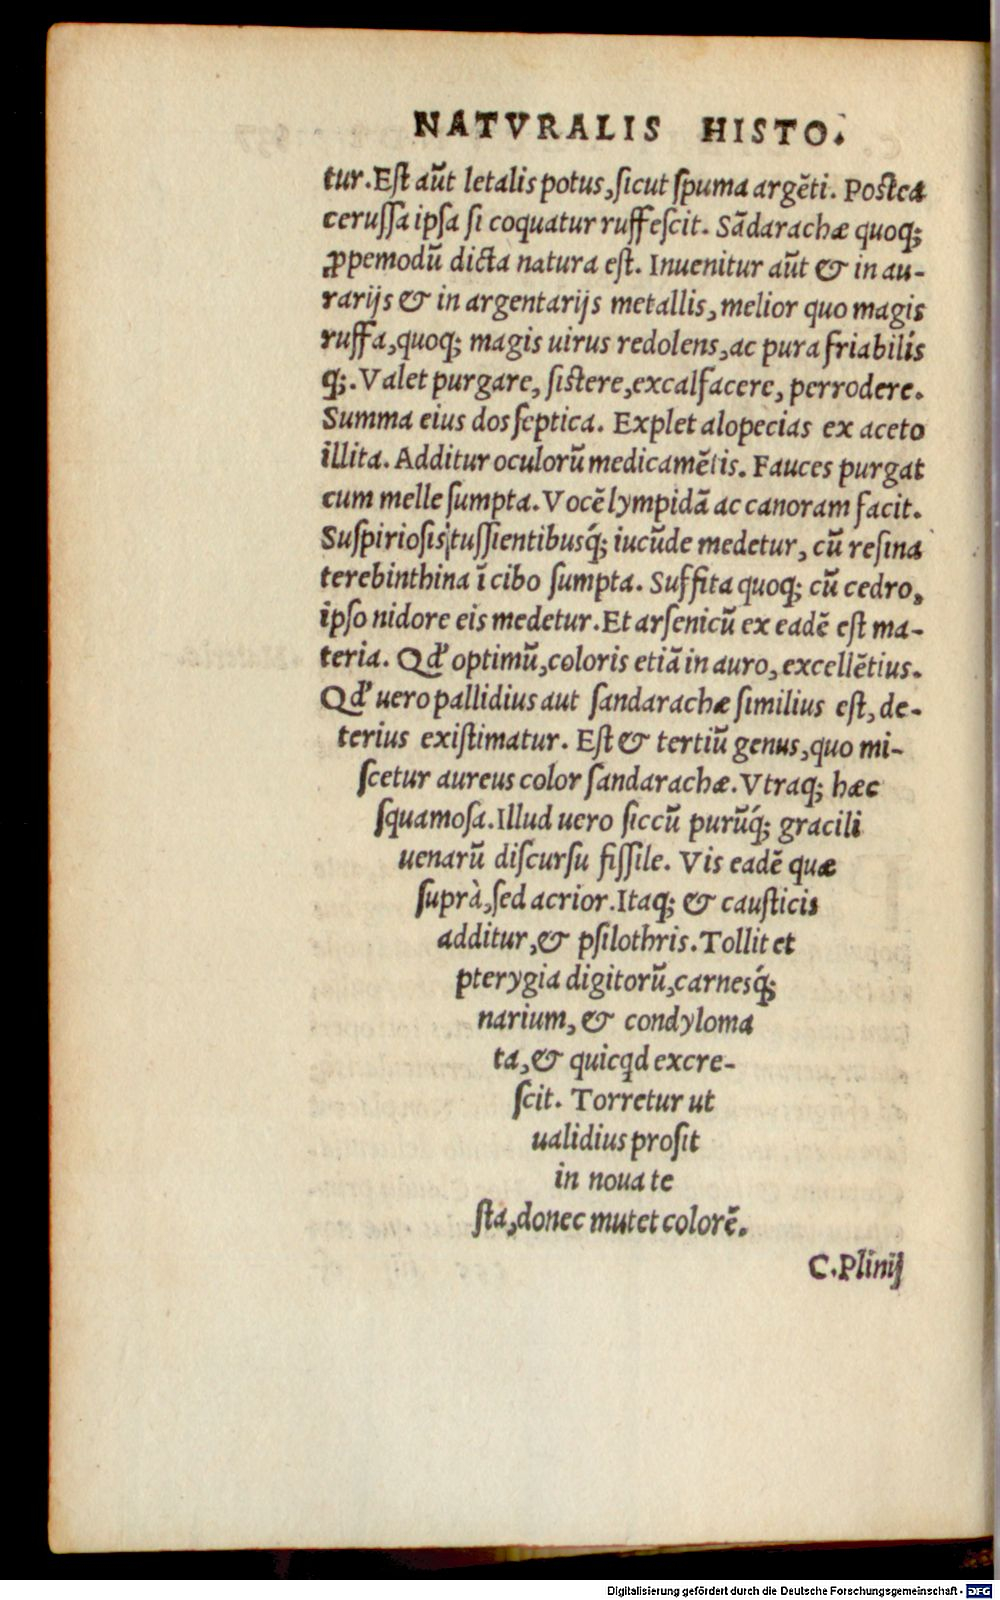 NATVRALIS HISTO.
tur. Eſt aūt letalis potus, ſicut ſpuma argēti. Poſtea
ceruſſa ipſa ſi coquatur ruffeſcit. Sādarachæ quoq;
ꝓpemodū dicta natura eſt. Inuenitur aūt & in au-
rarijs & in argentarijs metallis, melior quo magis
ruffa, quoq; magis uirus redolens, ac pura friabilis
q;. Valet purgare, ſiſtere, excalfacere, perrodere.
Summa eius dos ſeptica. Explet alopecias ex aceto
illita. Additur oculorū medicamētis. Fauces purgat
cum melle ſumpta. Vocē lympidā ac canoram facit.
Suſpirioſis tuſſientibusq́; iucūde medetur, cū reſina
terebinthina ī cibo ſumpta. Suffita quoq; cū cedro,
ipſo nidore eis medetur. Et arſenicū ex eadē eſt ma-
teria. Qđ optimū, coloris etiā in auro, excellētius.
Qđ uero pallidius aut ſandarachæ ſimilius eſt, de-
terius exiſtimatur. Eſt & tertiū genus, quo mi-
ſcetur aureus color ſandarachæ. Vtraq; hæc
ſquamoſa. Illud uero ſiccū purūq́; gracili
uenarū diſcurſu fiſſile. Vis eadē quæ
ſuprà, ſed acrior. Itaq; & cauſticis
additur, & pſilothris. Tollit et
pterygia digitorū, carnesq́;
narium, & condyloma
ta, & quicꝗd excre-
ſcit. Torretur ut
ualidius proſit
in noua te
ſta, donec mutet colorē.
C. Plinij
Digitalisierung gefördert durch die Deutsche Forschungsgemeinschaft - DFG